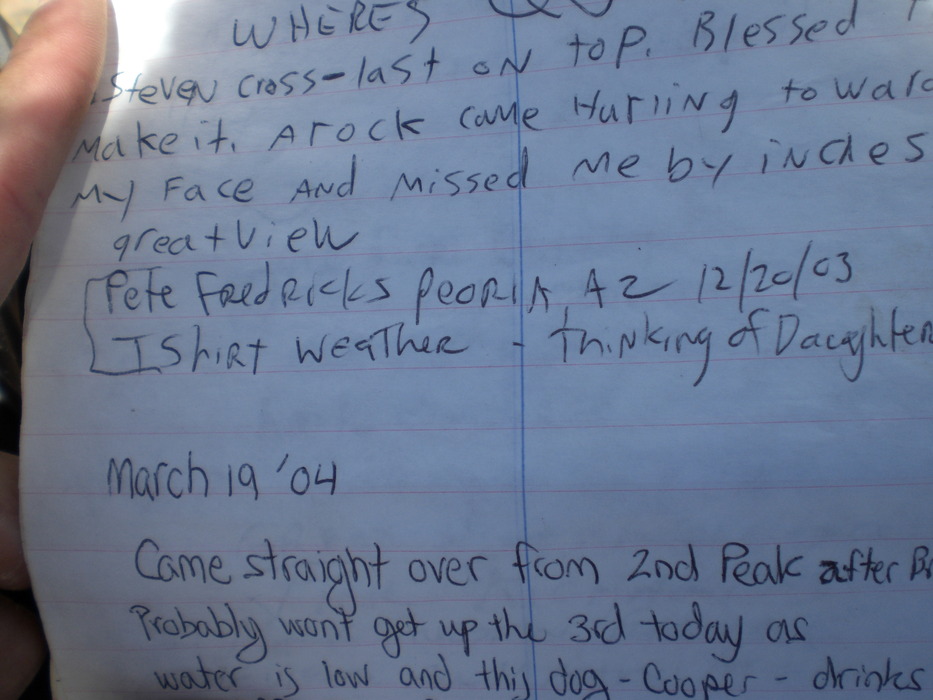 WHERES
Steven Cross-last on top. Blessed
Make it. A rock came Hurling toward
My Face And Missed Me by inches
great View
Pete Fredricks Peoria, AZ 12/20/03
TShirt Weather - thinking of Daughter
March 19 '04
Came straight over from 2nd Peak after
Probably wont get up the 3rd today as
water is low and this dog - Cooper - drinks